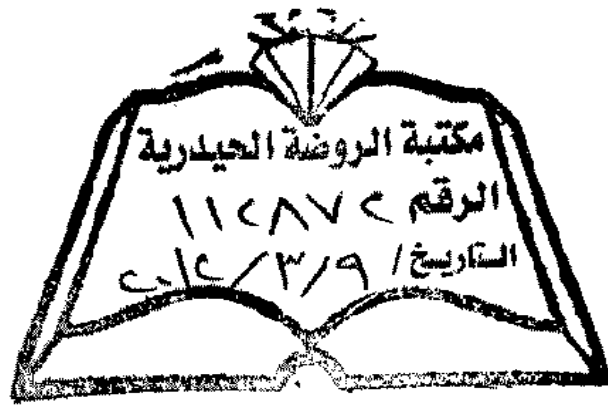 مكتبة الروضة الحيدرية
الرقم ١١٢٨٧٢
التاريخ / ٩ / ٣ / ٢٠١٢